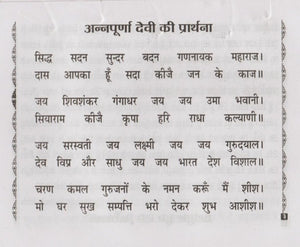 अन्नपूर्णा देवी की प्रार्थना
सिद्ध सदन सुन्दर बदन गणनायक महाराज।
दास आपका हूँ सदा कीजै जन के काज॥
जय शिवशंकर गंगाधर जय जय उमा भवानी।
सियाराम कीजै कृपा हरि राधा कल्याणी॥
जय सरस्वती जय लक्ष्मी जय जय गुरुदयाल।
देव विप्र और साधु जय जय भारत देश विशाल॥
चरण कमल गुरुजनों के नमन करूँ मैं शीश।
मो घर सुख सम्पत्ति भरो देकर शुभ आशीश॥